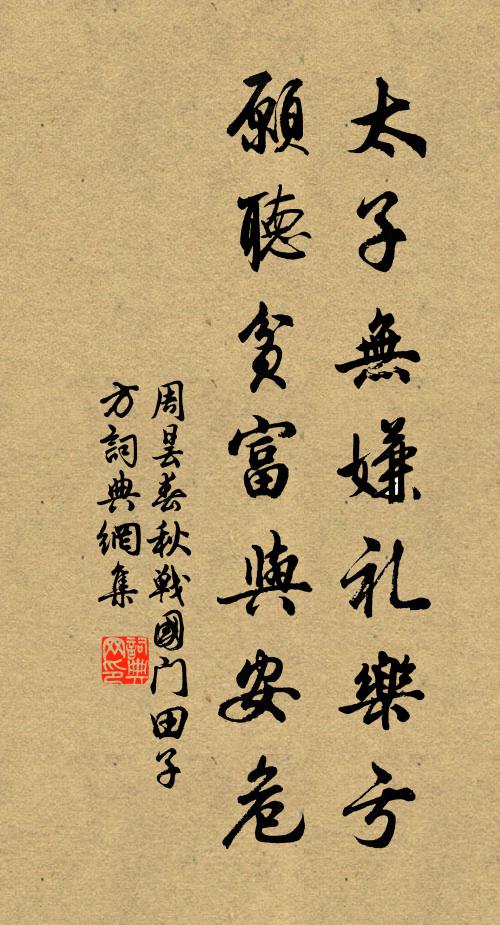 太子無嫌礼樂亏
願聽貧富與安危
周昙春秋戰國门田子
方詞典網集
詞典
网印